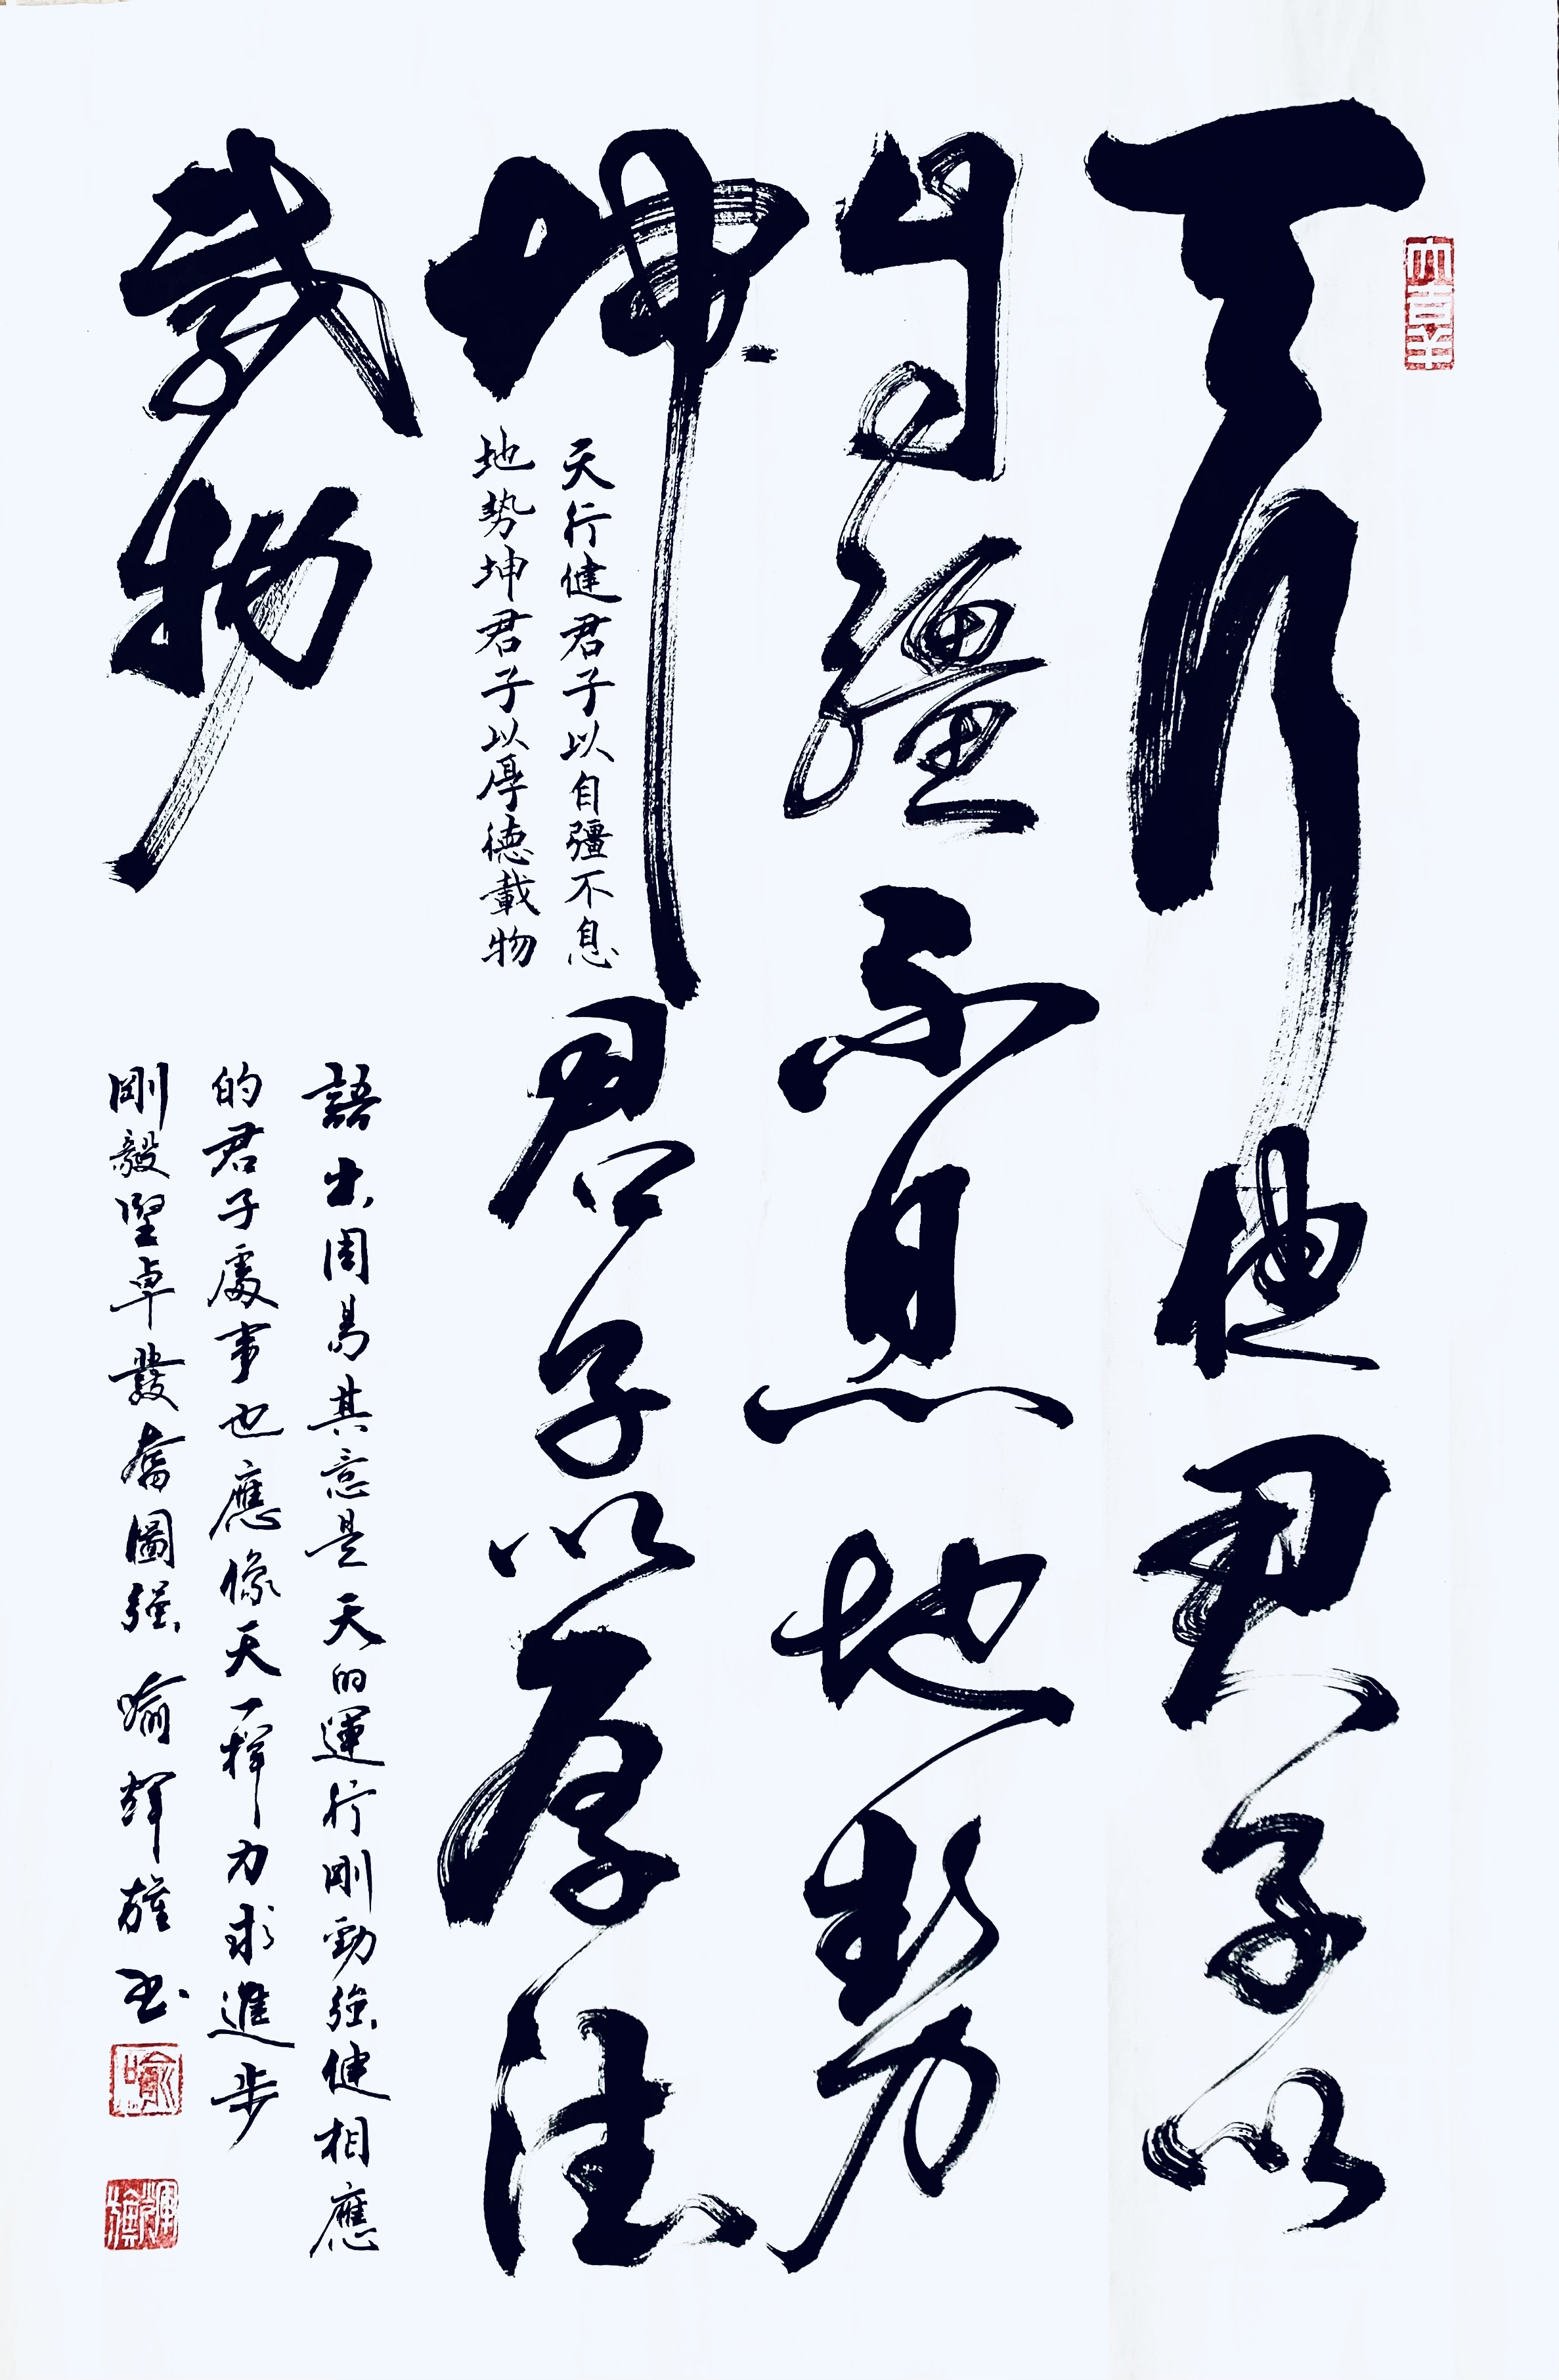 天行健君子以
自彊不息地勢
坤君子以厚德
載物
天行健君子以自彊不息
地勢坤君子以厚德載物
語出周易其意是天的運行剛勁強健相應
的君子處事也應像天一樣力求進步
剛毅堅卓發奮圖強 喻輝
大吉羊